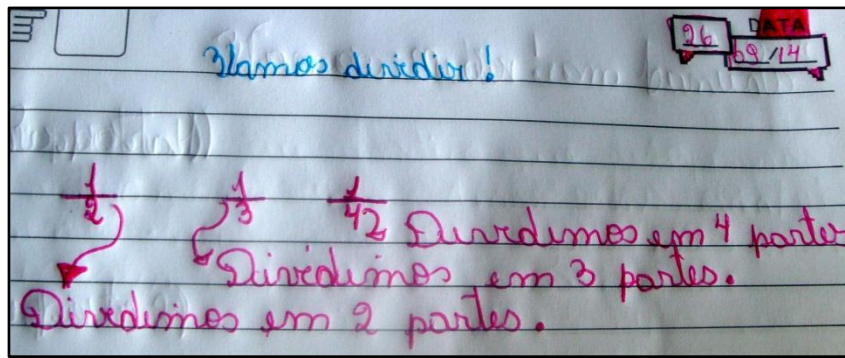 DATA
26
09/14
Vamos dividir!
1/2 1/3 1/42 Dividimos em 4 partes
Dividimos em 3 partes.
Dividimos em 2 partes.